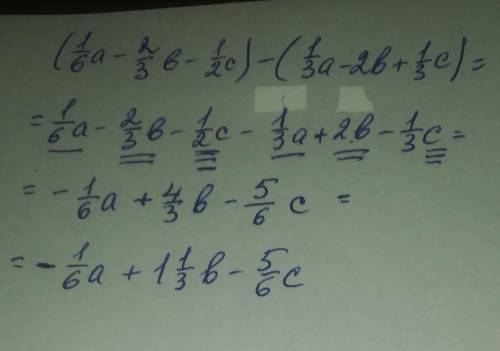 (1/6a - 2/3в - 1/2c) - (1/3a - 2в + 1/3c) =
= 1/6a - 2/3в - 1/2c - 1/3a + 2в - 1/3c =
= - 1/6a + 4/3в - 5/6 c =
= - 1/6a + 1 1/3в - 5/6c